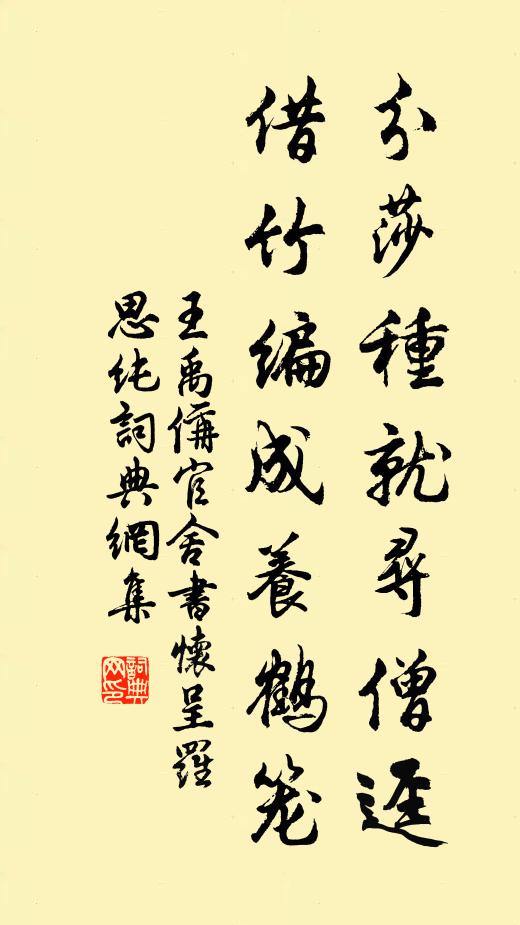 分莎種就尋僧逕
借竹編成養鶴笼
王禹偁官舍書懷呈羅
思纯詞典網集
詞典网印